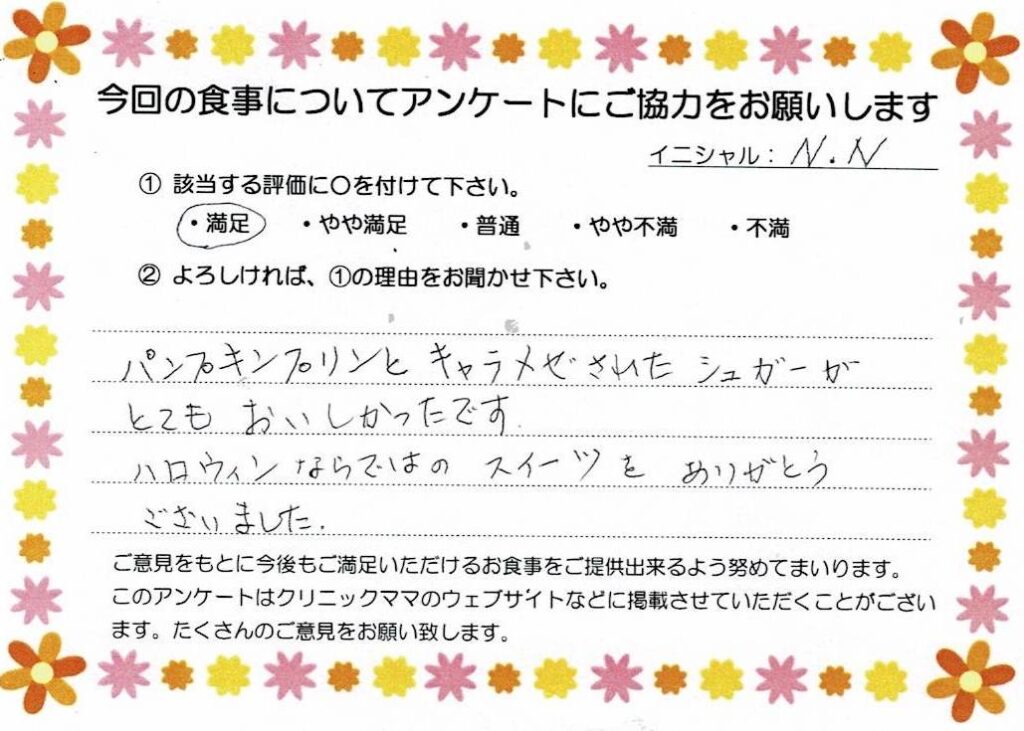 今回の食事についてアンケートにご協力をお願いします
イニシャル: N.N
① 該当する評価に○を付けて下さい。
・満足 ・やや満足 ・普通 ・やや不満 ・不満
② よろしければ、①の理由をお聞かせ下さい。
パンプキンプリンと キャラメゼされた シュガーが
とても おいしかったです.
ハロウィンならではの スイーツを ありがとう
ございました.
ご意見をもとに今後もご満足いただけるお食事をご提供出来るよう努めてまいります。
このアンケートはクリニックママのウェブサイトなどに掲載させていただくことがござい
ます。たくさんのご意見をお願い致します。